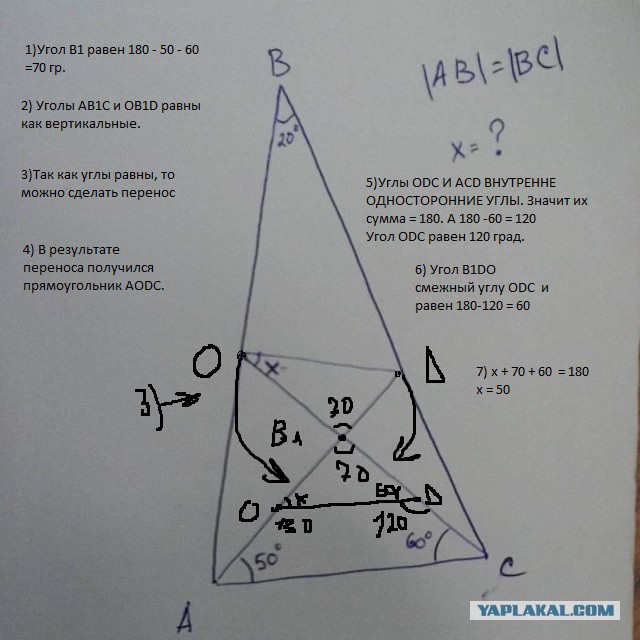 1)Угол B1 равен 180 - 50 - 60
=70 гр.
2) Уголы AB1C и OB1D равны
как вертикальные.
3)Так как углы равны, то
можно сделать перенос
4) В результате
переноса получился
прямоугольник AODC.
B
20°
|AB|=|BC|
x = ?
5)Углы ODC И ACD ВНУТРЕННЕ
ОДНОСТОРОННИЕ УГЛЫ. Значит их
сумма = 180. А 180 -60 = 120
Угол ODC равен 120 град.
6) Угол B1DO
смежный углу ODC и
равен 180-120 = 60
7) x + 70 + 60 = 180
x = 50
O
x
D
3)
70
B1
70
O
x
60
D
130
120
50°
60°
A
C
YAPLAKAL.COM